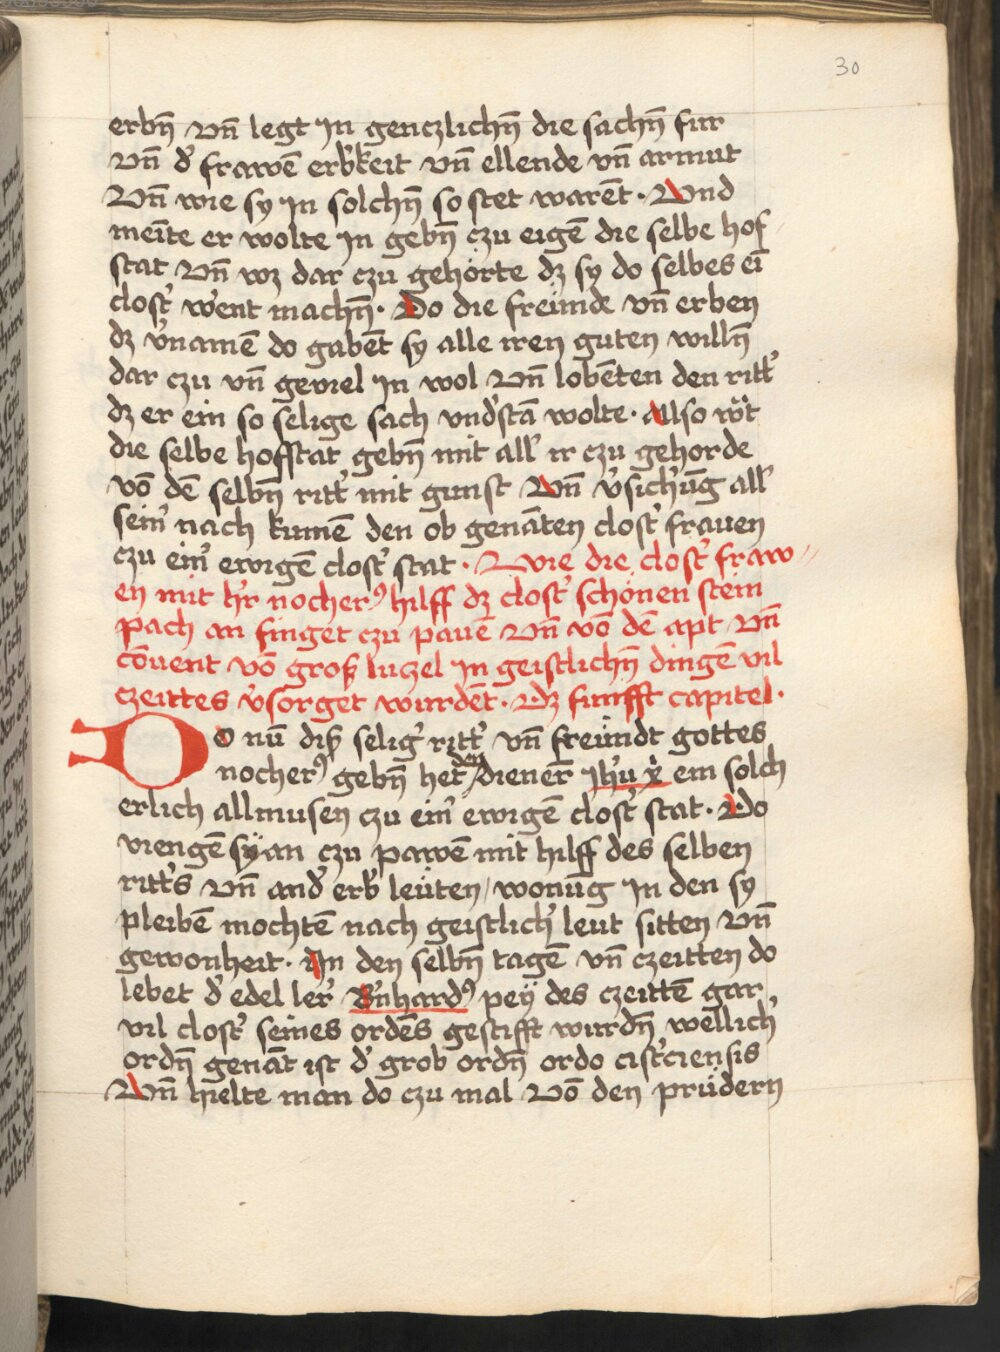 30
erbn̄ vn̄ legt in genczlichn̄ die sachn̄ fur
vn̄ d' frawē erb'keit vn̄ ellende vn̄ armut
Vn̄ wie sy in solchn̄ so stet warēt · Vnd
meīte er wolte in gebn̄ czu eigē die selbe hof
stat vn̄ wz dar czu gehörte dz sy do selbes eī
clost' w'ent machn̄ · Do die freünde vn̄ erben
dz v'namē do gabēt sy alle iren guten willn̄
dar czu vn̄ geviel in wol Vn̄ lobēten den ritt'
dz er ein so selige sach vnd'stā wolte · Allso
die selbe hofstat gebn̄ mit all' ir czu gehorde
vō dē selbn̄ ritt' mit gunst Vn̄ v'sich'ūg all'
sein' nach kumē den ob genāten clost' frauen
czu ein' ewigē clost' stat · Wie die clost' fraw
en mit h'r nocher⁹ hilff dz clost' schönen stein
pach an finget czu pauē Vn̄ vō dē apt Vn̄
cōvent vō groß luczel in geistlichn̄ dingē vil
czeittes v'sorget wurdēt · Dz funfft capitel ·
Do nū diß selig' ritt' vn̄ freündt gottes
nocher⁹ gebn̄ het den diener Jh'u x̄ ein solch
erlich allmusen czu ein' ewigē clost' stat · Do
viengē sÿ an czu pawē mit hilff des selben
ritt's vn̄ and' erb' leüten / wonūg in den sy
pleibē mochtē nach geistlich' leut sitten vn̄
gewonheit · In den selbn̄ tagē vn̄ czeitten do
lebet d' edel ler' B'nhard⁹ peÿ des czeittē gar
vil clost' seines ordēs gestifft wurdn̄ wellich'
ordn̄ genāt ist d' grob ordn̄ ordo cist'ciensis
Vn̄ hielte man do czu mal Vō den prüdern